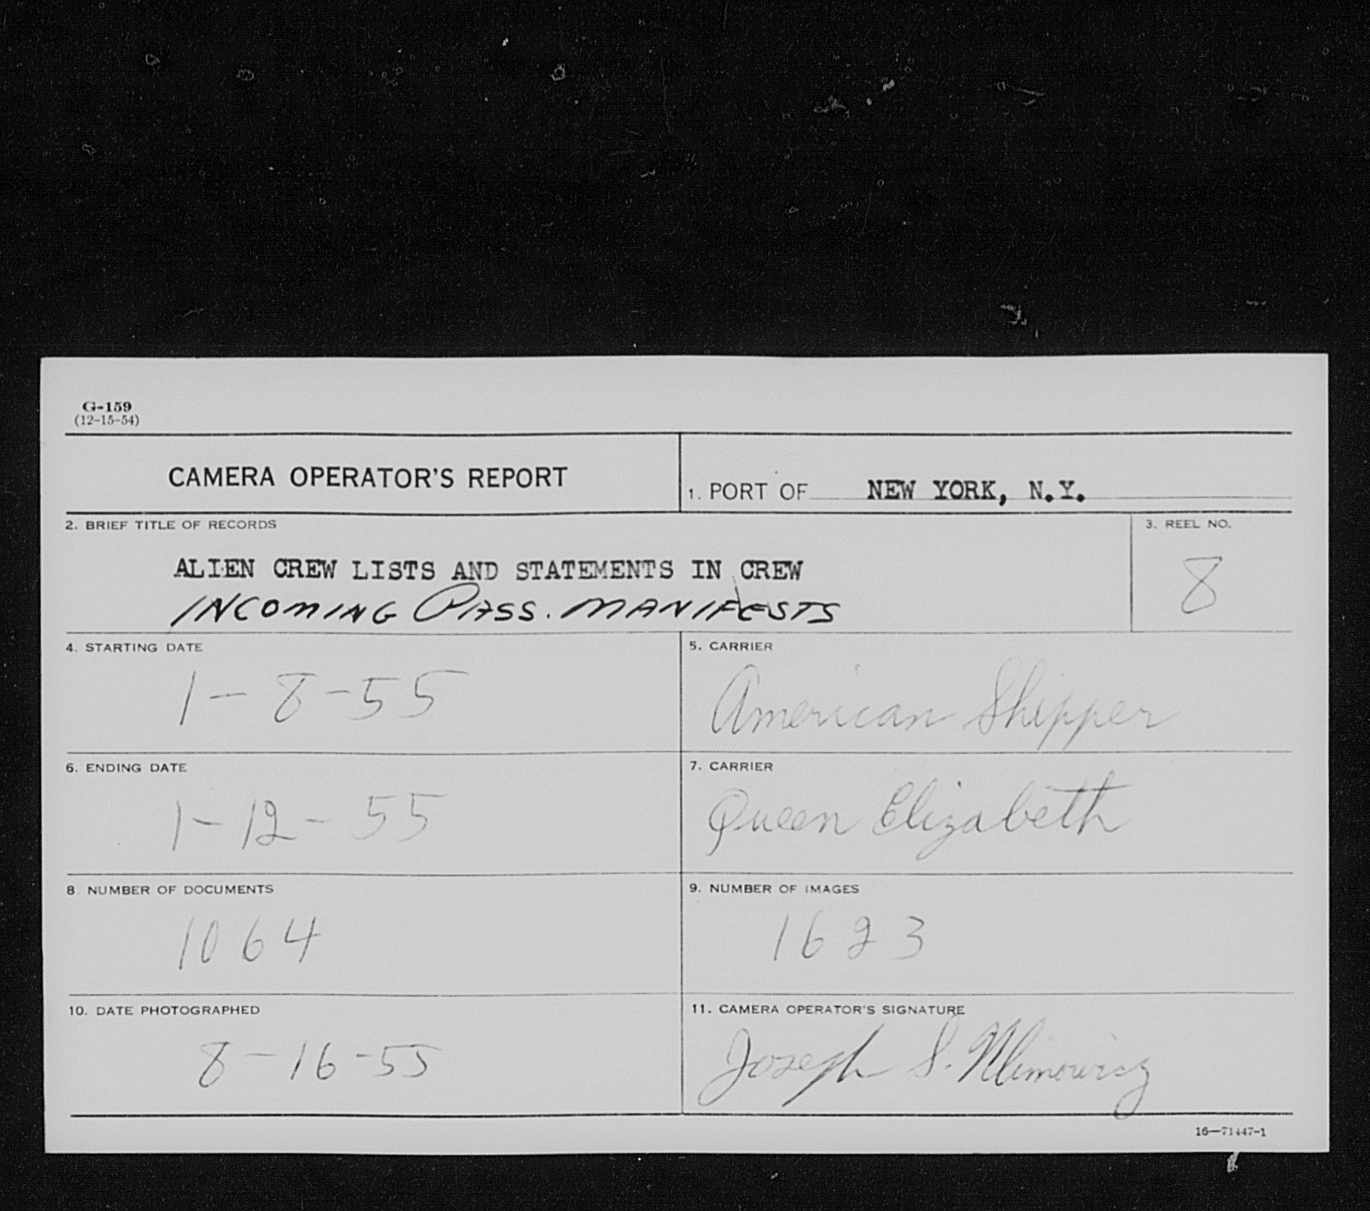 G-159
(12-15-54)
CAMERA OPERATOR'S REPORT
1. PORT OF NEW YORK, N.Y.
2. BRIEF TITLE OF RECORDS
ALIEN CREW LISTS AND STATEMENTS IN CREW
INCOMING PASS. MANIFESTS
3. REEL NO.
8
4. STARTING DATE
1-8-55
5. CARRIER
American Shipper
6. ENDING DATE
1-12-55
7. CARRIER
Queen Elizabeth
8. NUMBER OF DOCUMENTS
1064
9. NUMBER OF IMAGES
1623
10. DATE PHOTOGRAPHED
8-16-55
11. CAMERA OPERATOR'S SIGNATURE
Joseph S.
16-71447-1